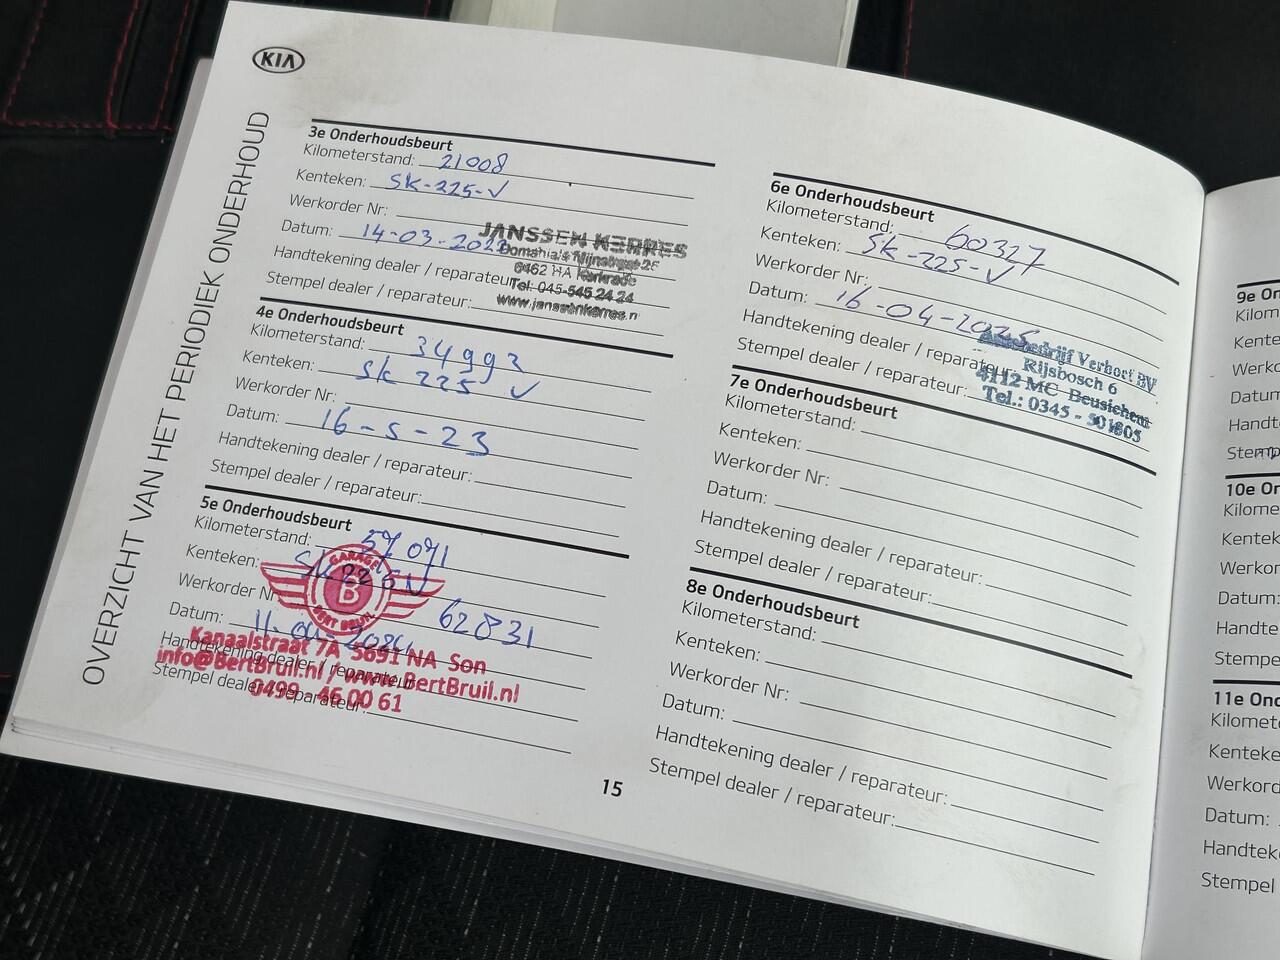 KIA
OVERZICHT VAN HET PERIODIEK ONDERHOUD
3e Onderhoudsbeurt
Kilometerstand: 21008
Kenteken: SK-225-V
Werkorder Nr:
Datum: 14-03-2022
Handtekening dealer / reparateur:
Stempel dealer / reparateur:
JANSSEN KERRES
Domaniale Mijnstraat 25
6462 HA Kerkrade
Tel: 045-545 24 24
www.janssenkerres.n
4e Onderhoudsbeurt
Kilometerstand: 34992
Kenteken: SK 225 V
Werkorder Nr:
Datum: 16-5-23
Handtekening dealer / reparateur:
Stempel dealer / reparateur:
5e Onderhoudsbeurt
Kilometerstand: 57071
Kenteken: SK 225 V
Werkorder Nr: 62831
Datum: 11-04-2024
Handtekening dealer / reparateur:
Stempel dealer / reparateur:
GARAGE
B
BERT BRUIL
Kanaalstraat 7A 5691 NA Son
info@BertBruil.nl / www.BertBruil.nl
0499 - 46 00 61
6e Onderhoudsbeurt
Kilometerstand: 60327
Kenteken: SK-225-V
Werkorder Nr:
Datum: 16-04-2025
Handtekening dealer / reparateur:
Stempel dealer / reparateur:
Autobedrijf Verhoef BV
Rijsbosch 6
4112 MC Beusichem
Tel.: 0345 - 501805
7e Onderhoudsbeurt
Kilometerstand:
Kenteken:
Werkorder Nr:
Datum:
Handtekening dealer / reparateur:
Stempel dealer / reparateur:
8e Onderhoudsbeurt
Kilometerstand:
Kenteken:
Werkorder Nr:
Datum:
Handtekening dealer / reparateur:
Stempel dealer / reparateur:
15
9e On
Kilom
Kente
Werko
Datum
Handt
Stemp
10e On
Kilome
Kentek
Werkor
Datum:
Handte
Stempe
11e Ond
Kilomet
Kenteke
Werkord
Datum:
Handtek
Stempel